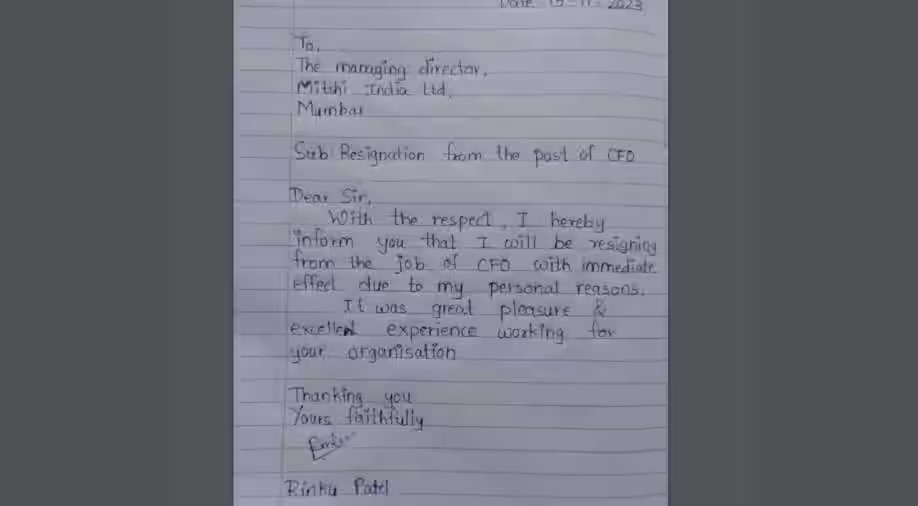 Date 15-11-2023
To,
The managing director,
Mitshi India Ltd,
Mumbai
Sub: Resignation from the post of CFO
Dear Sir,
With the respect, I hereby
inform you that I will be resigning
from the job of CFO with immediate
effect due to my personal reasons.
It was great pleasure &
excellent experience working for
your organisation
Thanking you
Yours faithfully
Rinku Patel